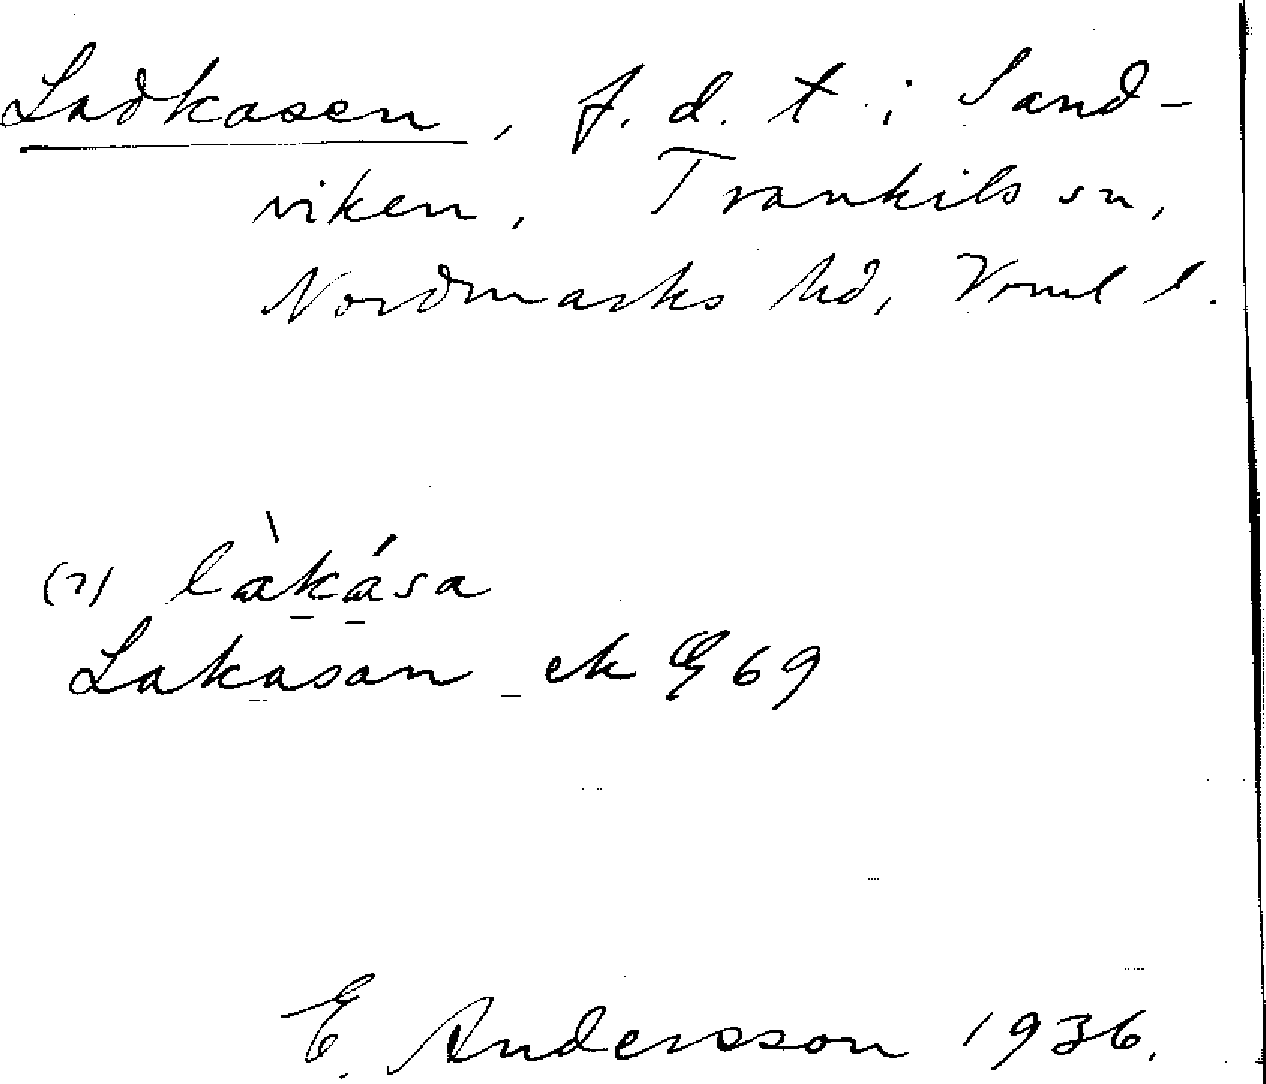 Ladkasen, f. d. t. i Sand-
viken, Trankils sn,
Nordmarks hd, Vrml l.
(?) làkása
Lakasan ek 69
E. Andersson 1936.